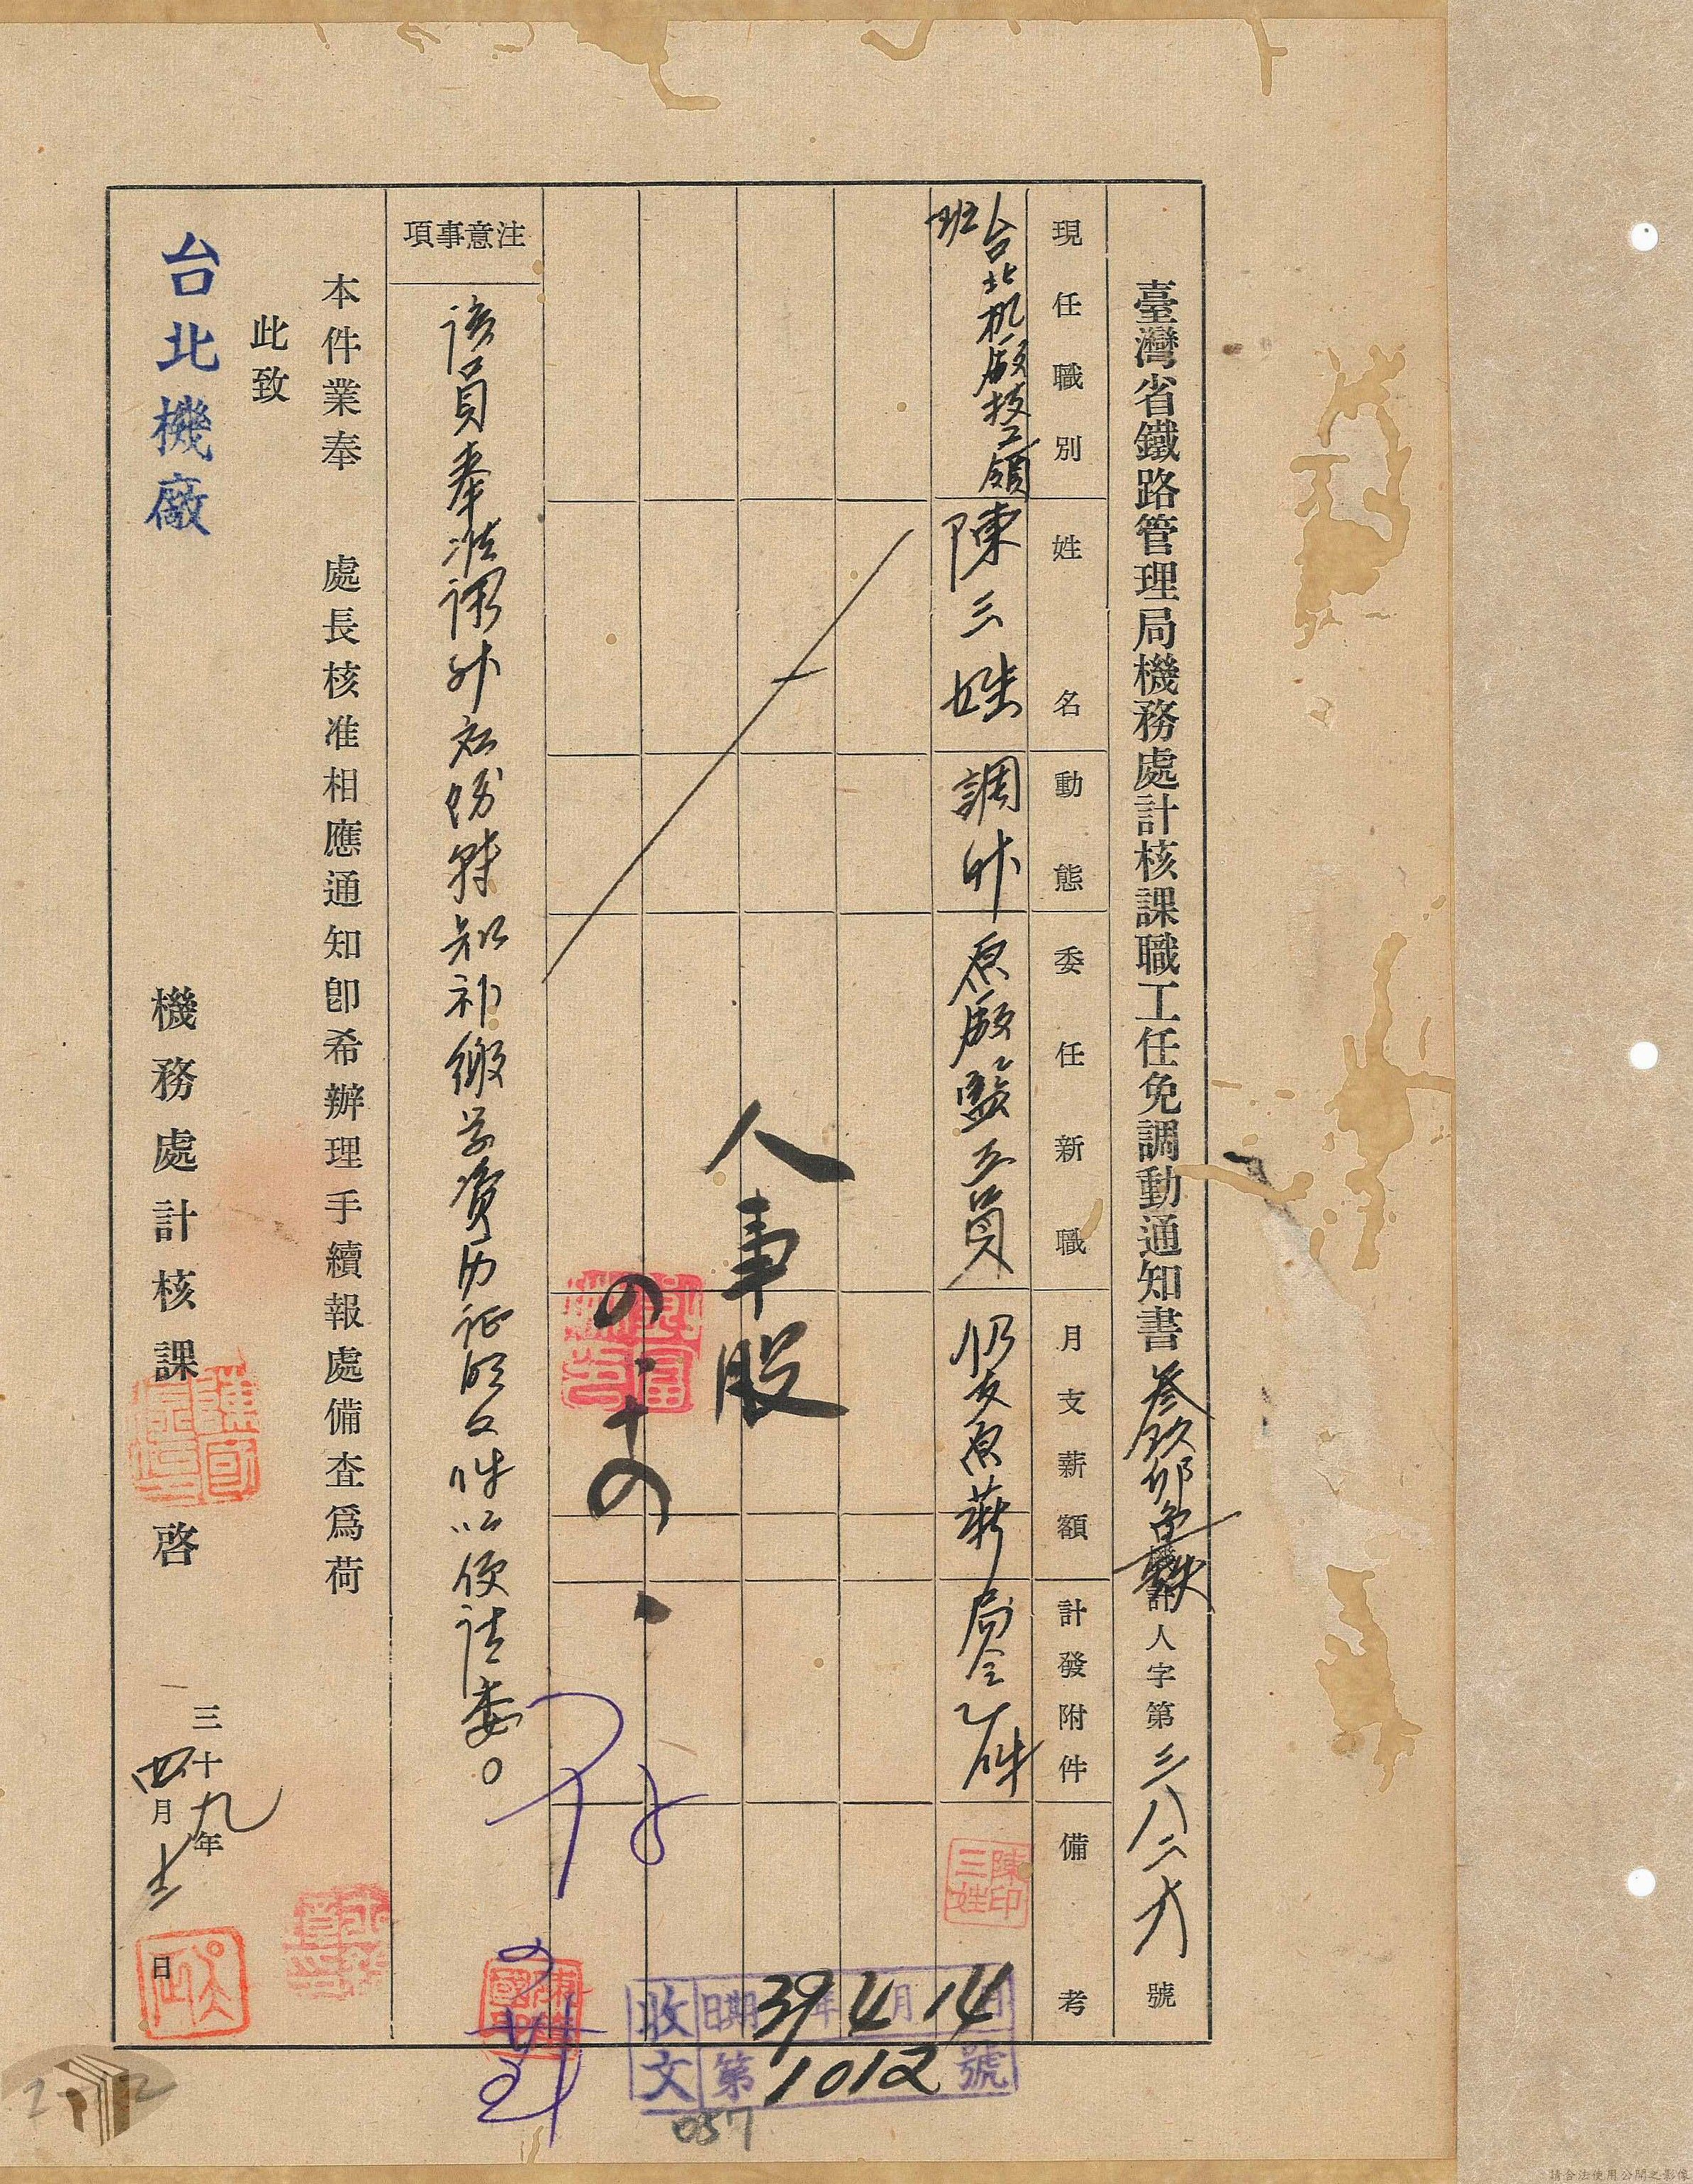 臺灣省鐵路管理局機務處計核課職工任免調動通知書 叁玖卯 人字第三八二六號
現任職別
姓名
動態
委任新職
月支薪額
計發附件
備考
台北机廠技工領班
陳三姓
調升
原廠監工員
仍支原薪
局令乙件
陳三姓印
人事股
注意事項
該員奉准調升 份 知補繳學資歷證明文件以便請委。
本件業奉 處長核准相應通知卽希辦理手續報處備查爲荷
此致
台北機廠
機務處計核課 啓
三十九年四月十三日
收文 日期 39年4月14日
第1012號
057
請合法使用公開之影像